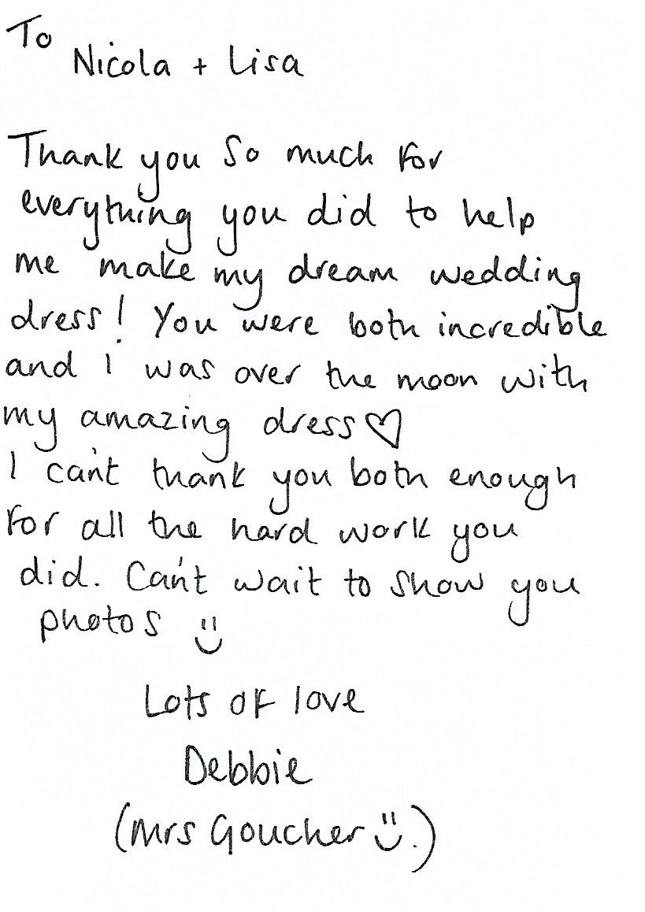 To
Nicola + Lisa
Thank you So much for
everything you did to help
me make my dream wedding
dress! You were both incredible
and i was over the moon with
my amazing dress♡
I can't thank you both enough
for all the hard work you
did. Can't wait to show you
photos ☺
Lots of love
Debbie
(Mrs Goucher ☺.)